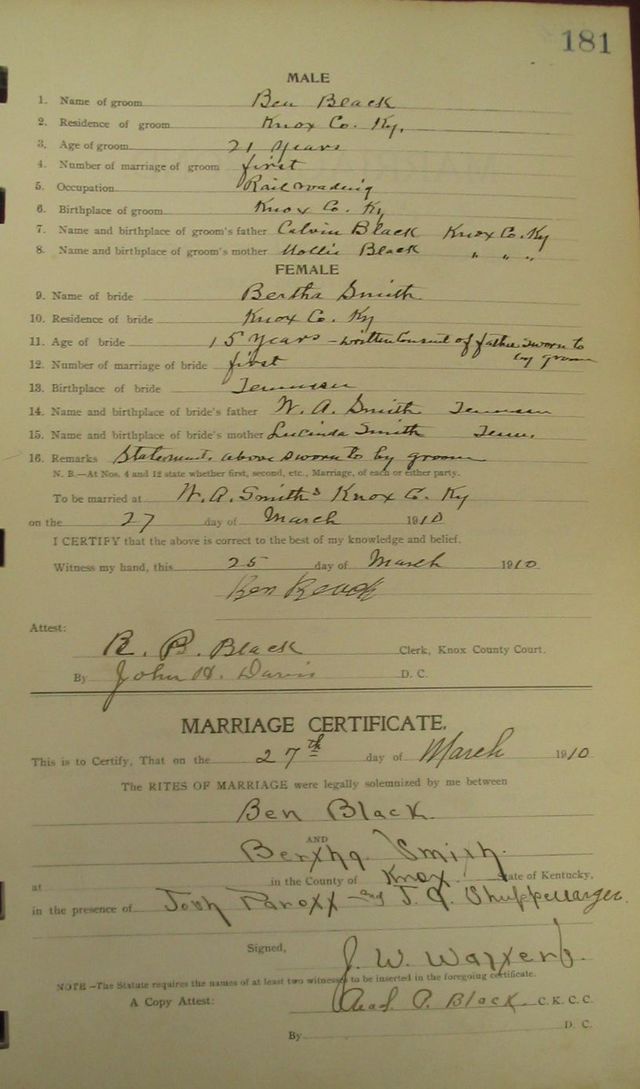 181
MALE
1. Name of groom Ben Black
2. Residence of groom Knox Co. Ky.
3. Age of groom 21 years
4. Number of marriage of groom first
5. Occupation Railroading
6. Birthplace of groom Knox Co. Ky
7. Name and birthplace of groom's father Calvin Black Knox Co. Ky
8. Name and birthplace of groom's mother Black " " "
FEMALE
9. Name of bride Bertha Smith
10. Residence of bride Knox Co. Ky
11. Age of bride 15 years - written consent of father sworn to
by groom
12. Number of marriage of bride first
13. Birthplace of bride Tennessee
14. Name and birthplace of bride's father W. A. Smith Tennessee
15. Name and birthplace of bride's mother Lucinda Smith Tenn.
16. Remarks Statements above sworn to by groom
N. B.—At Nos. 4 and 12 state whether first, second, etc., Marriage, of each or either party.
To be married at W. A. Smith's Knox Co. Ky
on the 27 day of March 1910
I CERTIFY that the above is correct to the best of my knowledge and belief.
Witness my hand, this 25 day of March 1910
Ben Black
Attest:
R. B. Black Clerk, Knox County Court.
By John H. Davis D. C.
MARRIAGE CERTIFICATE.
This is to Certify, That on the 27th day of March 1910
The RITES OF MARRIAGE were legally solemnized by me between
Ben Black.
AND
Bertha Smith.
at in the County of Knox State of Kentucky,
in the presence of and J. Q.
Signed, J. W.
NOTE—The Statute requires the names of at least two witnesses to be inserted in the foregoing certificate.
A Copy Attest: P. Black C. K. C. C.
By D. C.